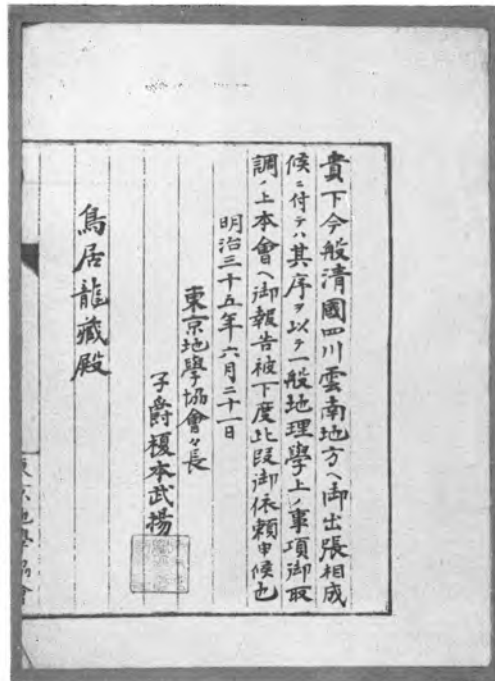 貴下今般清國四川雲南地方ヘ御出張相成
候ニ付テハ其序ヲ以テ一般地理學上ノ事項御取
調ノ上本會ヘ御報告被下度此段御依頼申候也
明治三十五年六月二十一日
東京地學協會々長
子爵榎本武揚
鳥居龍藏殿
東京地學協會